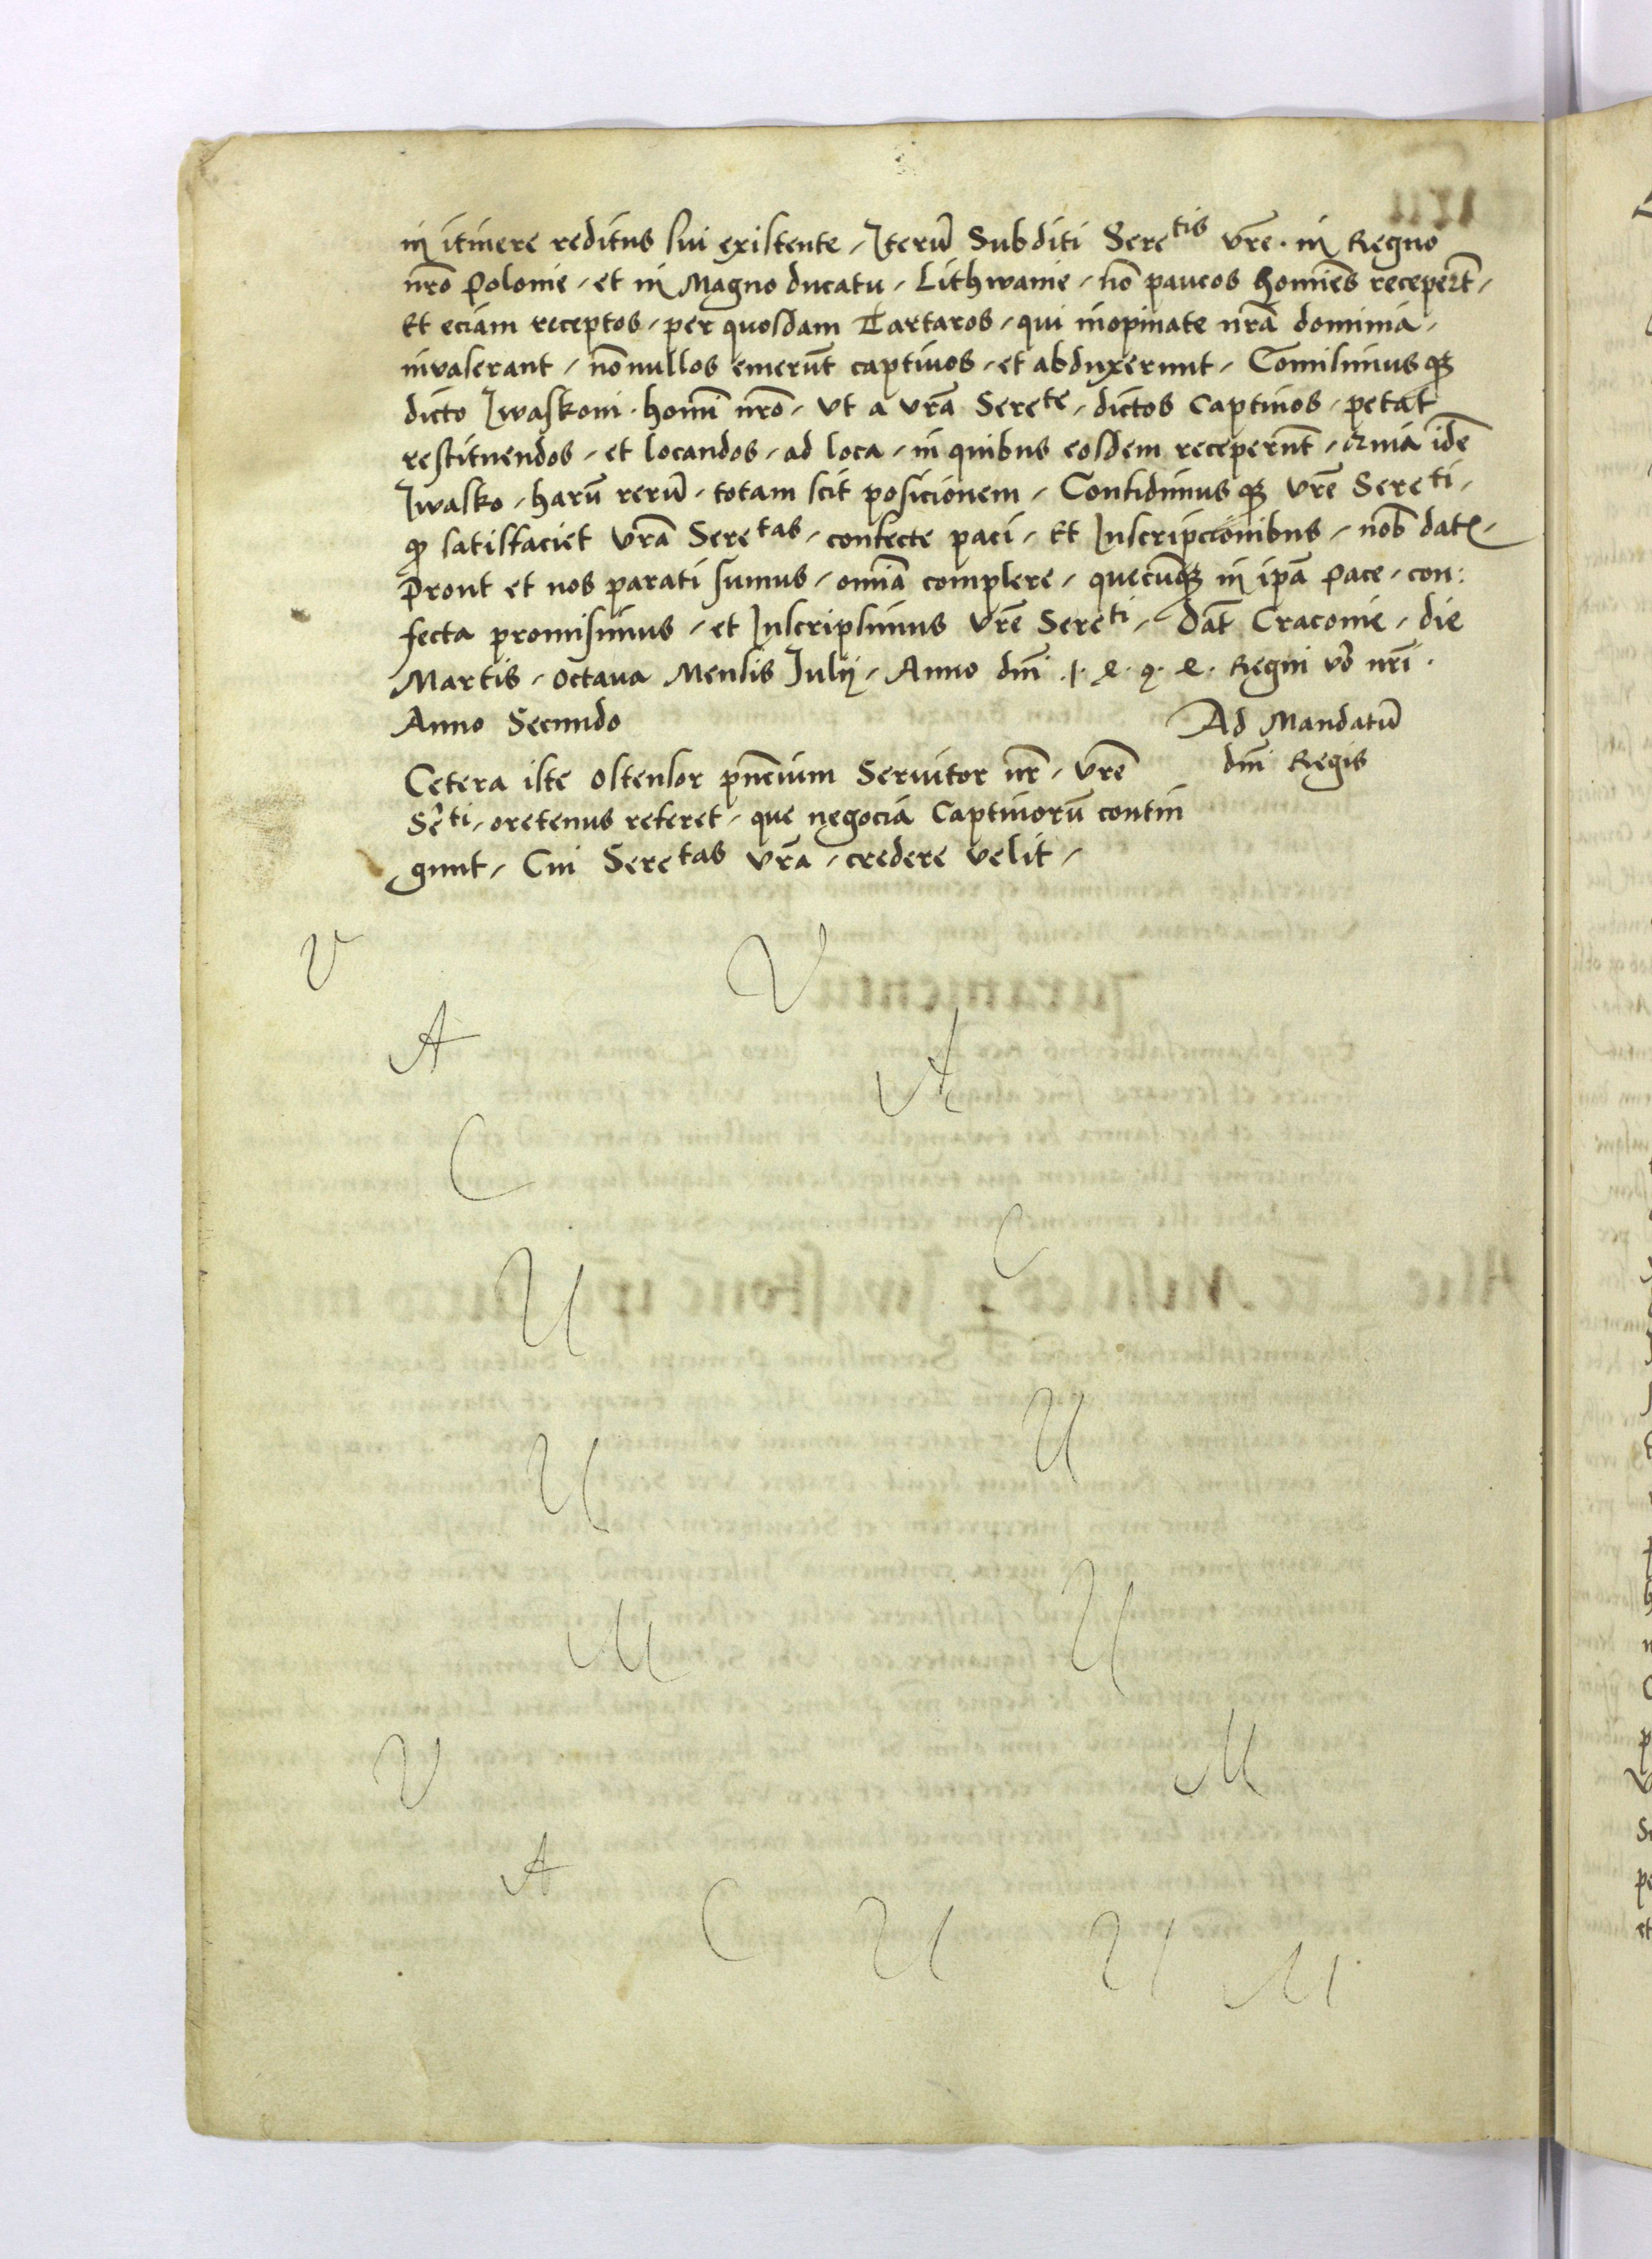 in itinere reditus sui existente / Iterũ Subditi Sere^tis vr̃e · in Regno
nr̃o Polonie / et in Magno ducatu / Lithwanie / nõ paucos homĩes recepert̃ /
Et eciam receptos / per quosdam Tartaros / qui inopinate nr̃a dominia /
invaserant / nõnullos emerũt captivos / et abduxerunt / Comisimus qȝ
dicto Iwaskoni · homĩ nr̃o / vt a vr̃a Sere^te / dictos Captivos / petat
restituendos / et locandos / ad loca / in quibus eosdem receperũt / Quia idẽ
Iwasko / harũ rerũ / totam scit posicionem / Confidimus qȝ vr̃e Sere^ti /
qȝ satisfaciet vr̃a Sere^tas / confecte paci / Et Inscripcionibus / nob̃ dat̃ /
Prout et nos parati sumus / omĩa complere / quecũqȝ in ip̃a Pace / con:
fecta promisimus / et Inscripsimus vr̃e Sere^ti / Dat̃ Cracovie / die
Martis / octava Mensis Iulij / Anno dnĩ · 1 · 4 · 9 · 4 · Regni vo nrĩ ·
Anno Secundo
Ad Mandatũ
dnĩ Regis
Cetera iste ostensor pñcium Servitor nr̃ / vr̃e
Sẽ^ti / oretenus referet / que negocia Captivorũ contin
gunt / Cui Sere^tas vr̃a / credere velit /
V V
A A
C C
U U
U U
M M
V A C U U M